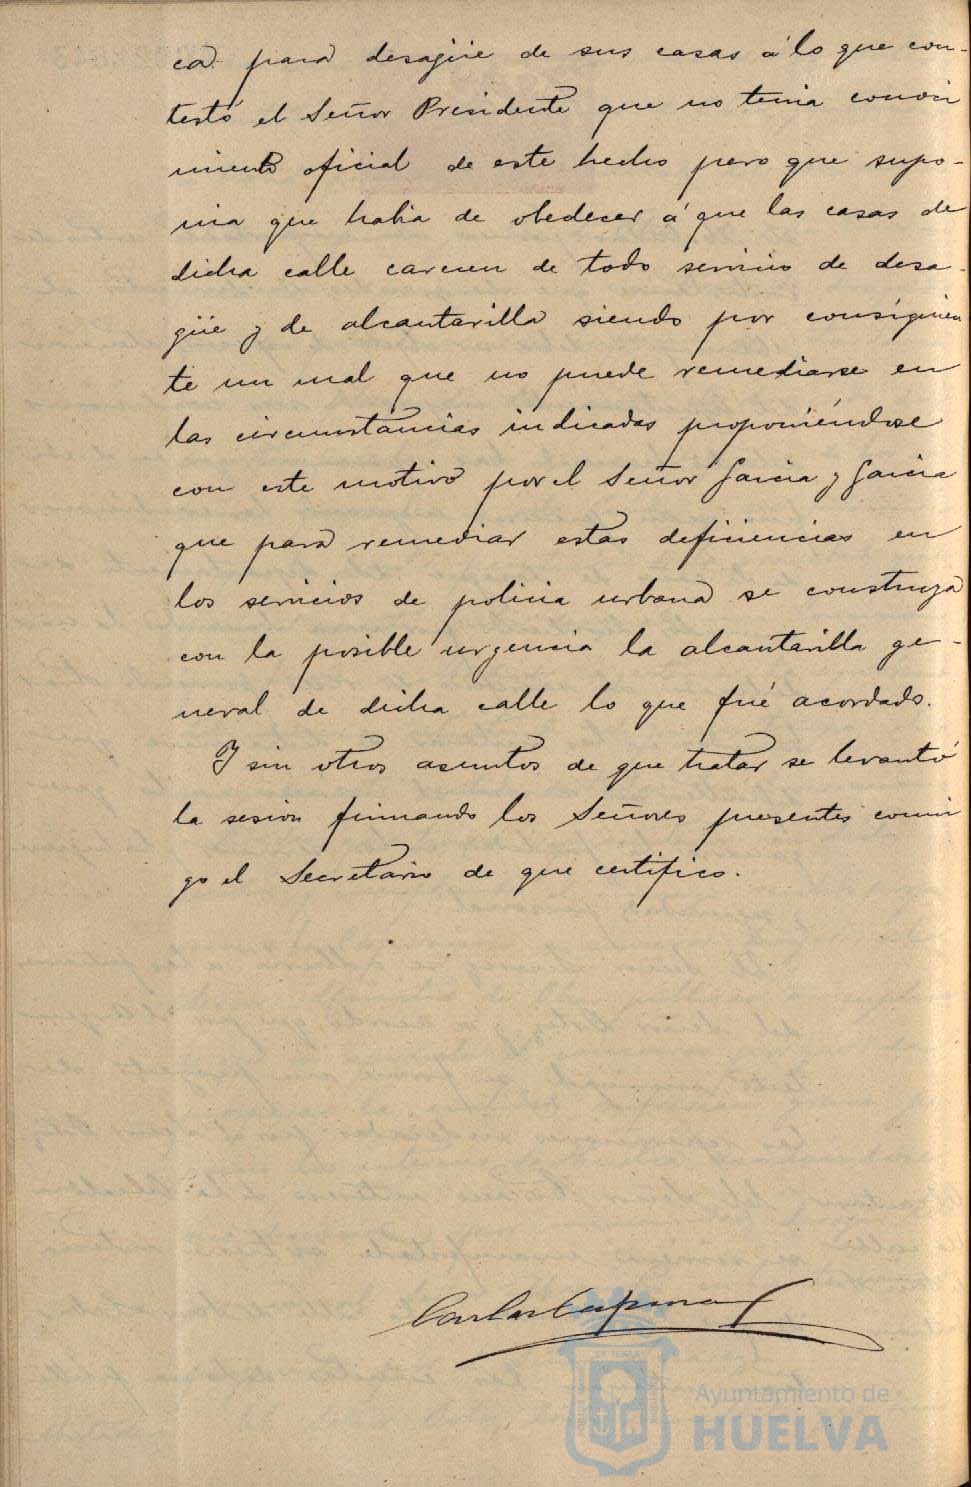 ca para desagüe de sus casas á lo que con-
testó el Señor Presidente que no tenia conoci
miento oficial de este hecho pero que supo-
nia que habia de obedecer á que las casas de
dicha calle carecen de todo servicio de desa-
güe y de alcantarilla siendo por consiguien
te un mal que no puede remediarse en
las circunstancias indicadas proponiéndose
con este motivo por el Señor Garcia y Garcia
que para remediar estas deficiencias en
los servicios de policia urbana se construya
con la posible urgencia la alcantarilla ge-
neral de dicha calle lo que fué acordado.
Y sin otros asuntos de que tratar se levantó
la sesion firmando los Señores presentes conmi
go el Secretario de que certifico.
Ayuntamiento de
HUELVA